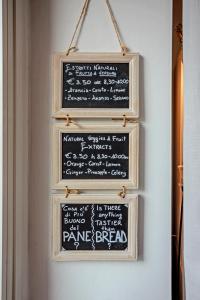 Estratti Naturali
di Frutta & Verdura
€ 3,50 dle 8,30-10:00
• Arancia - Carota - Limone
• Zenzero - Ananas - Sedano
Natural Veggies & Fruit
Extracts
€ 3.50 h 8.30-10.00am
• Orange - Carrot - Lemon
• Ginger - Pineapple - Celery
Cosa c'è
di Più
BUONO
del
PANE
Is THERE
anything
TASTIER
than
BREAD